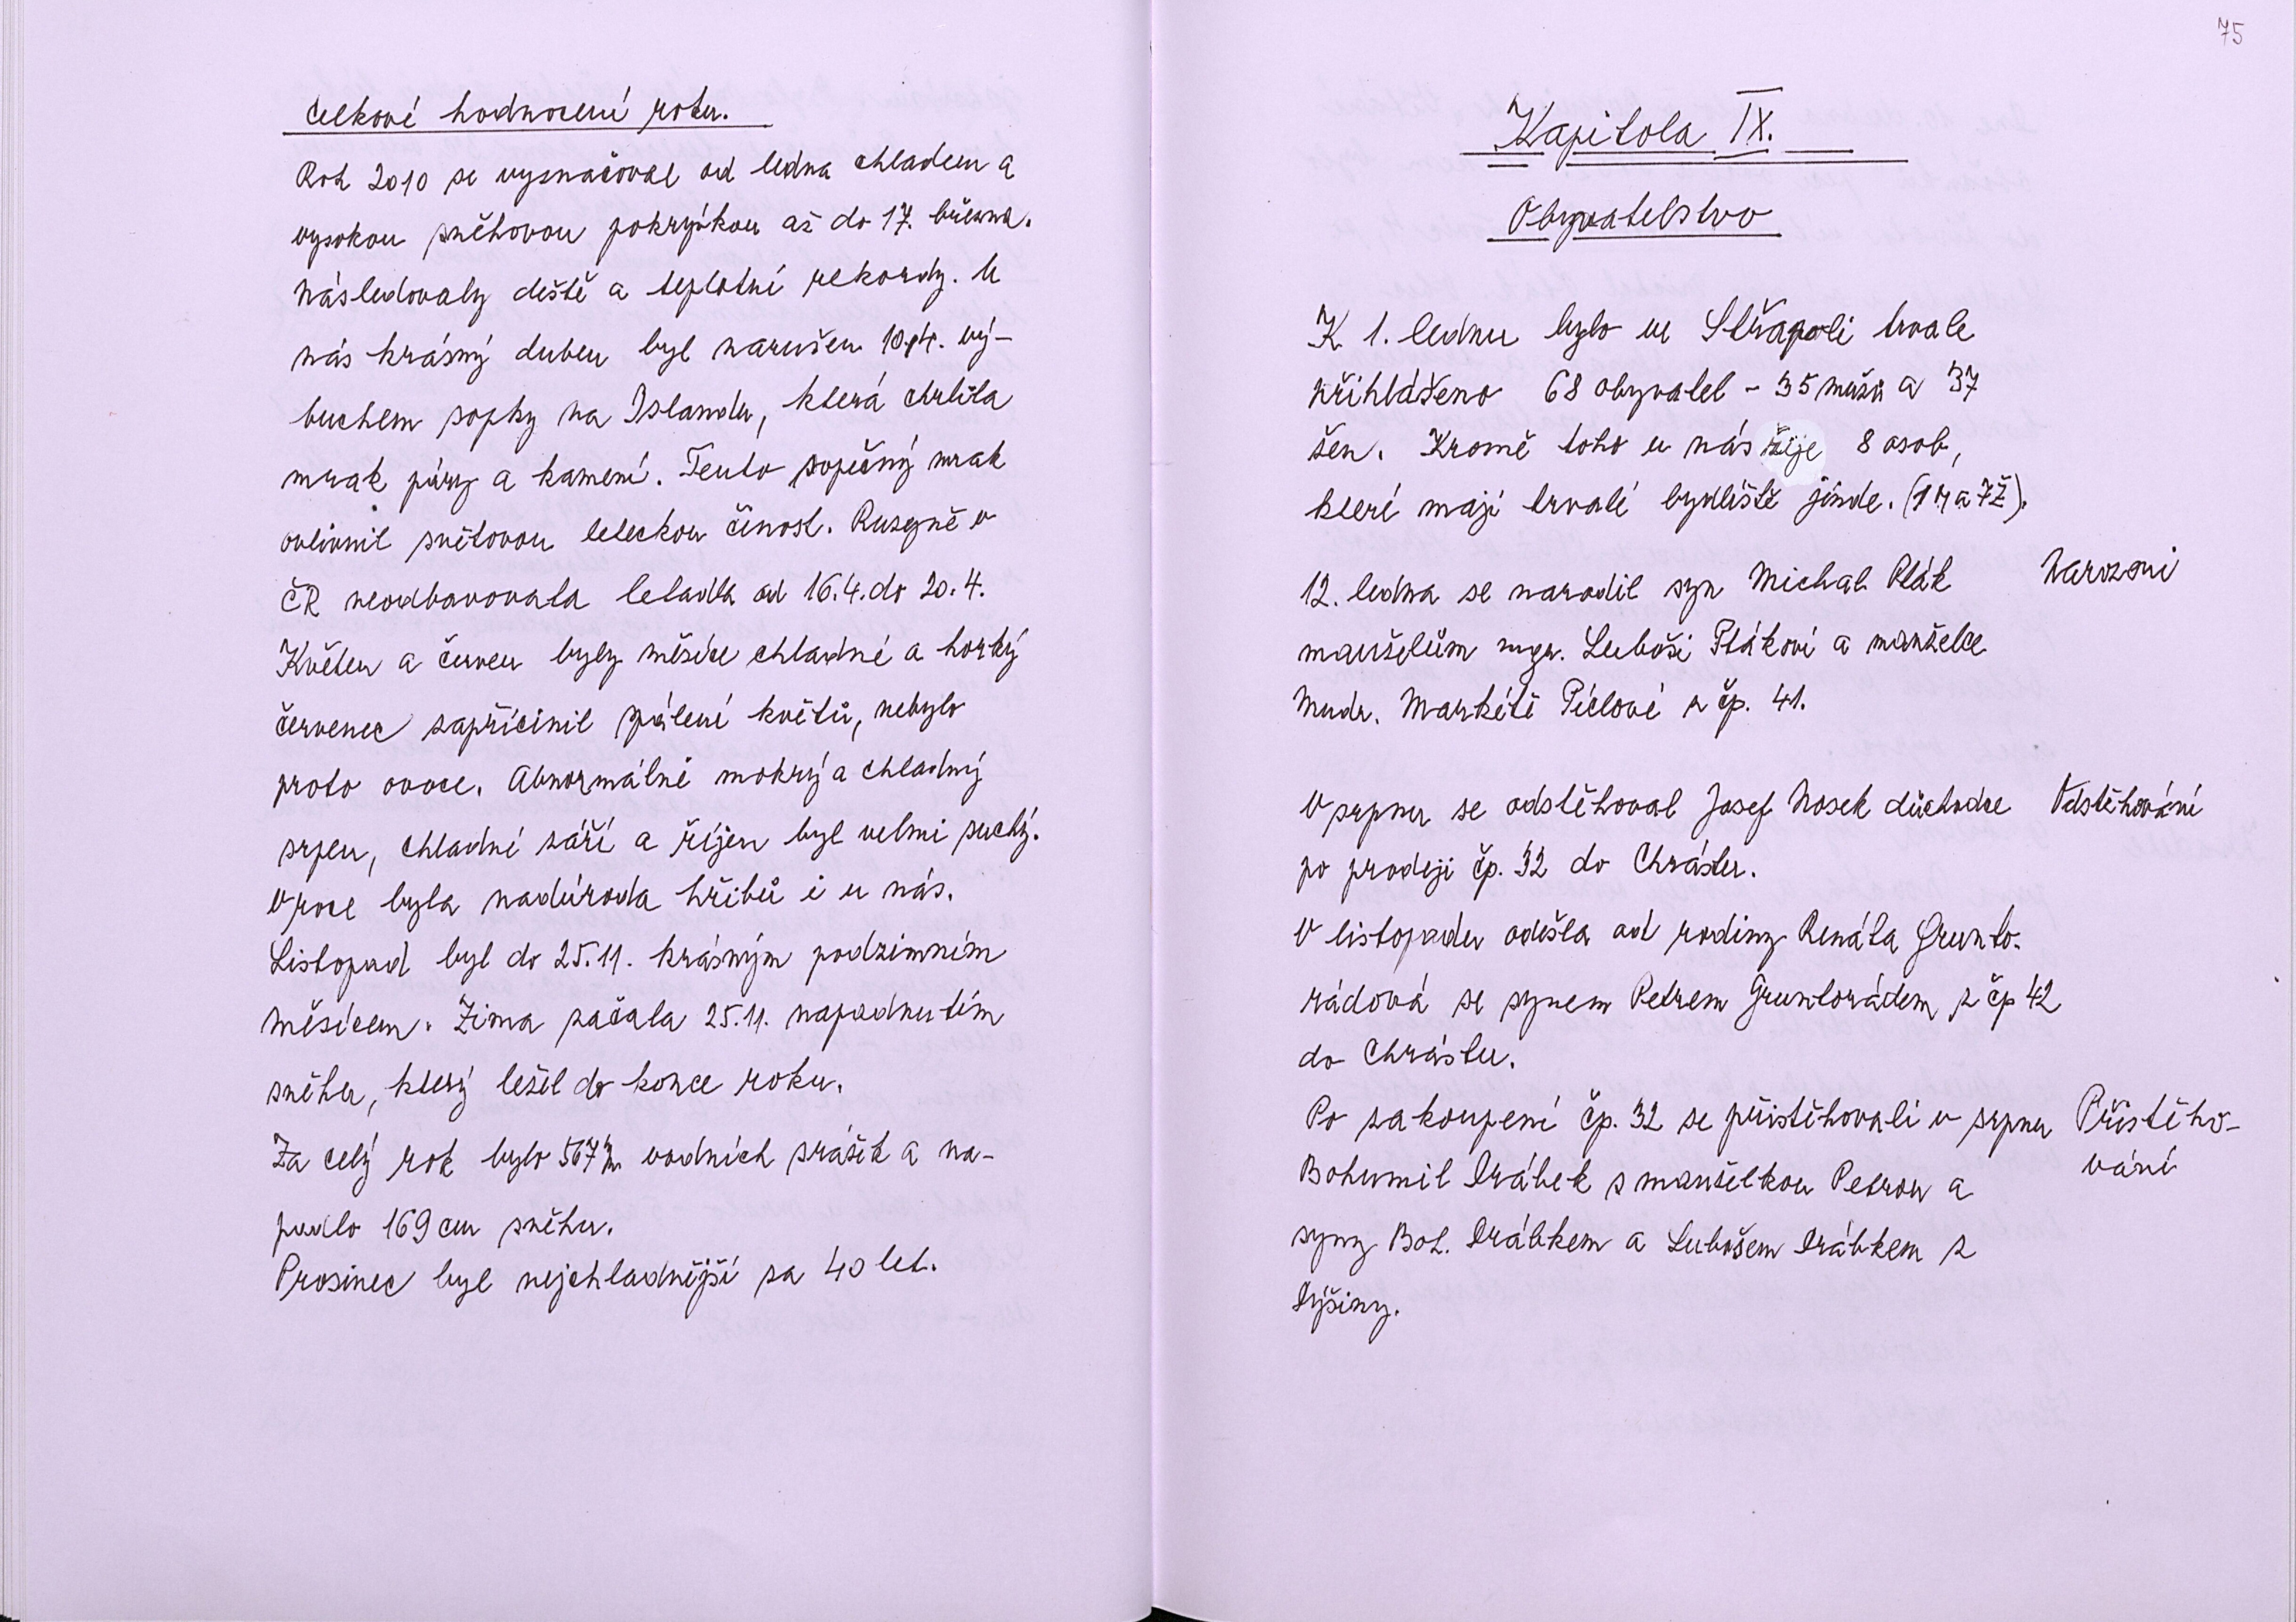 Celkové hodnocení roku.
Rok 2010 se vyznačoval od ledna chladem a
vysokou sněhovou pokrývkou až do 17. března.
Následovaly deště a teplotní rekordy. U
nás krásný duben byl narušen 10.4. vý-
buchem sopky na Islandu, která chrlila
mrak páry a kamení. Tento sopečný mrak
ovlivnil světovou leteckou činost. Ruzyně v
ČR neodbavovala letadla od 16.4. do 20.4.
Květen a červen byly měsíce chladné a horký
červenec zapříčinil pálení květů, nebylo
proto ovoce. Abnormálně mokrý a chladný
srpen, chladné září a říjen byl velmi suchý.
V roce byla nadúroda hřibů i u nás.
Listopad byl do 25.11. krásným podzimním
měsícem. Zima začala 25.11. napadnutím
sněhu, který ležel do konce roku.
Za celý rok bylo 567 vodních srážek a na-
padlo 169 cm sněhu.
Prosinec byl nejchladnější za 40 let.
75
Kapitola IX.
Obyvatelstvo
K 1. lednu bylo ve Střapoli trvale
přihlášeno 68 obyvatel - 35 mužů a 37
žen. Kromě toho u nás žije 8 osob,
které mají trvalé bydliště jinde. (1M a 7Ž).
12. ledna se narodil syn Michal Pták
Narození
manželům mgr. Luboši Ptákovi a manželce
Mudr. Markétě Píclové z čp. 41.
V srpnu se odstěhoval Josef Nosek důchodce
Odstěhování
po prodeji čp. 32 do Chrástu.
V listopadu odešla od rodiny Renáta Grunto-
rádová se synem Petrem Gruntorádem z čp 42
do Chrástu.
Po zakoupení čp. 32 se přistěhovali v srpnu
Přistěho-
vání
Bohumil Drábek s manželkou Petrou a
syny Boh. Drábkem a Lubošem Drábkem z
Dýšiny.